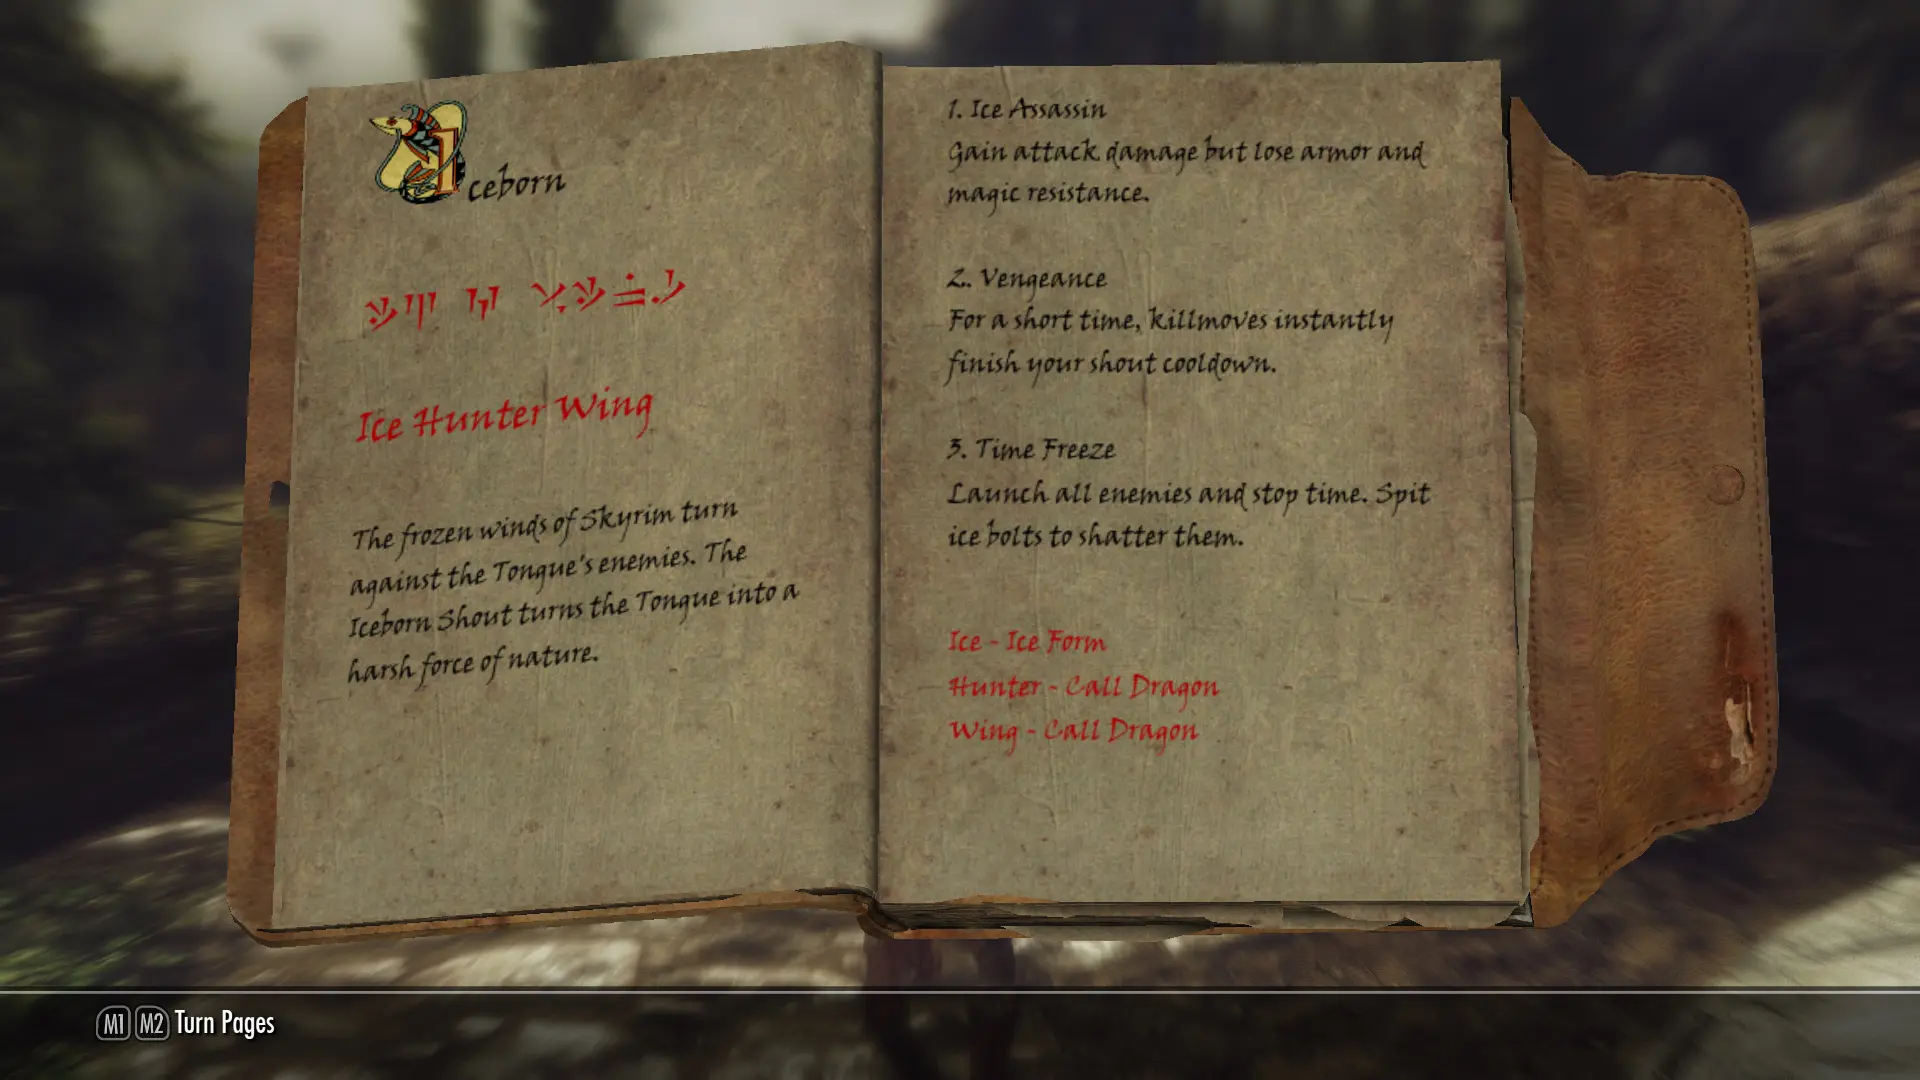 Iceborn
Ice Hunter Wing
The frozen winds of Skyrim turn
against the Tongue's enemies. The
Iceborn Shout turns the Tongue into a
harsh force of nature.
1. Ice Assassin
Gain attack damage but lose armor and
magic resistance.
2. Vengeance
For a short time, killmoves instantly
finish your shout cooldown.
3. Time Freeze
Launch all enemies and stop time. Spit
ice bolts to shatter them.
Ice - Ice Form
Hunter - Call Dragon
Wing - Call Dragon
M1 M2 Turn Pages